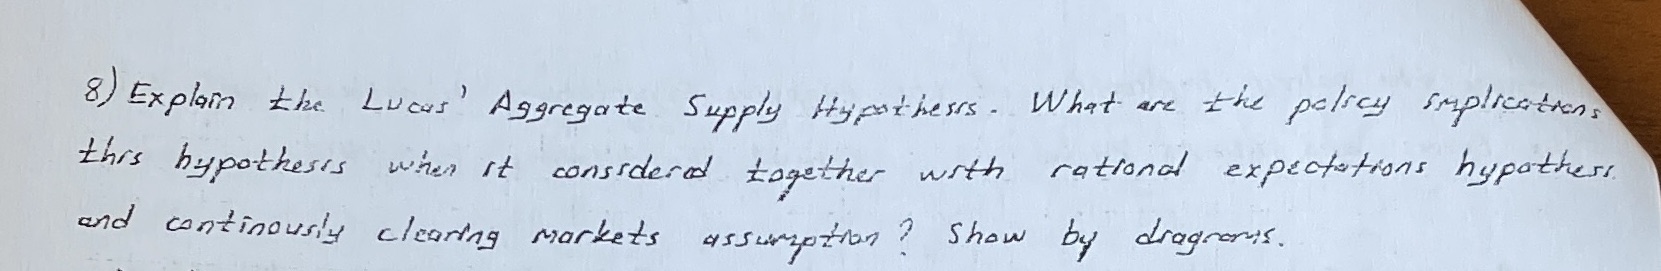 8) Explain the Lucas' Aggregate Supply Hypothesis. What are the policy implications
this hypothesis when it considered together with rational expectations hypothesis
and continously clearing markets assumption? Show by diagrams.